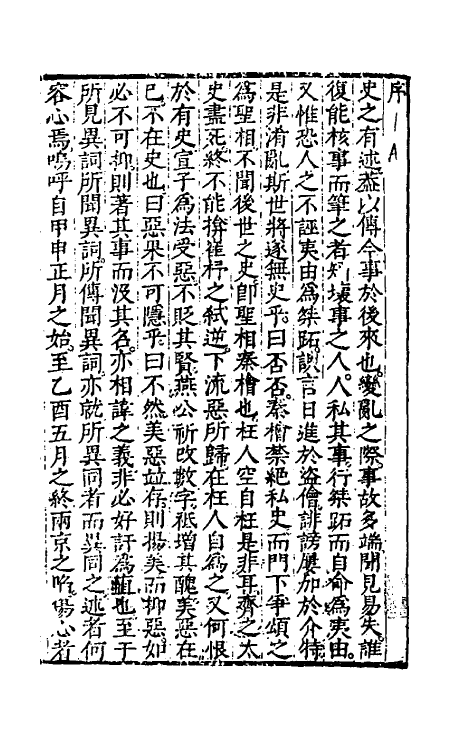 序
史之有述葢以傳今事於後來也變亂之際事故多端聞見易失誰
復能核事而筆之者矧壞事之人人私其事行桀跖而自命為夷由
又惟恐人之不誣夷由為桀跖誤言日進於盜儈誹謗屢加於介特
是非淆亂斯世將遂無史乎曰否否秦檜禁絕私史而門下爭頌之
為聖相不聞後世之史卽聖相秦檜也枉人空自枉是非耳齊之太
史盡死終不能揜崔杼之弑逆下流惡所歸在枉人自為之又何恨
於有史宣子為法受惡不貶其賢燕公祈改數字祗增其醜美惡在
已不在史也曰惡果不可隱乎曰不然美惡竝存則揚美而抑惡如
必不可抑則著其事而沒其名亦相諱之義非必好訐為直也至于
所見異詞所聞異詞所傳聞異詞亦就所異同者而異同之述者何
容心焉嗚呼自甲申正月之始至乙酉五月之終兩京之陷傷心者